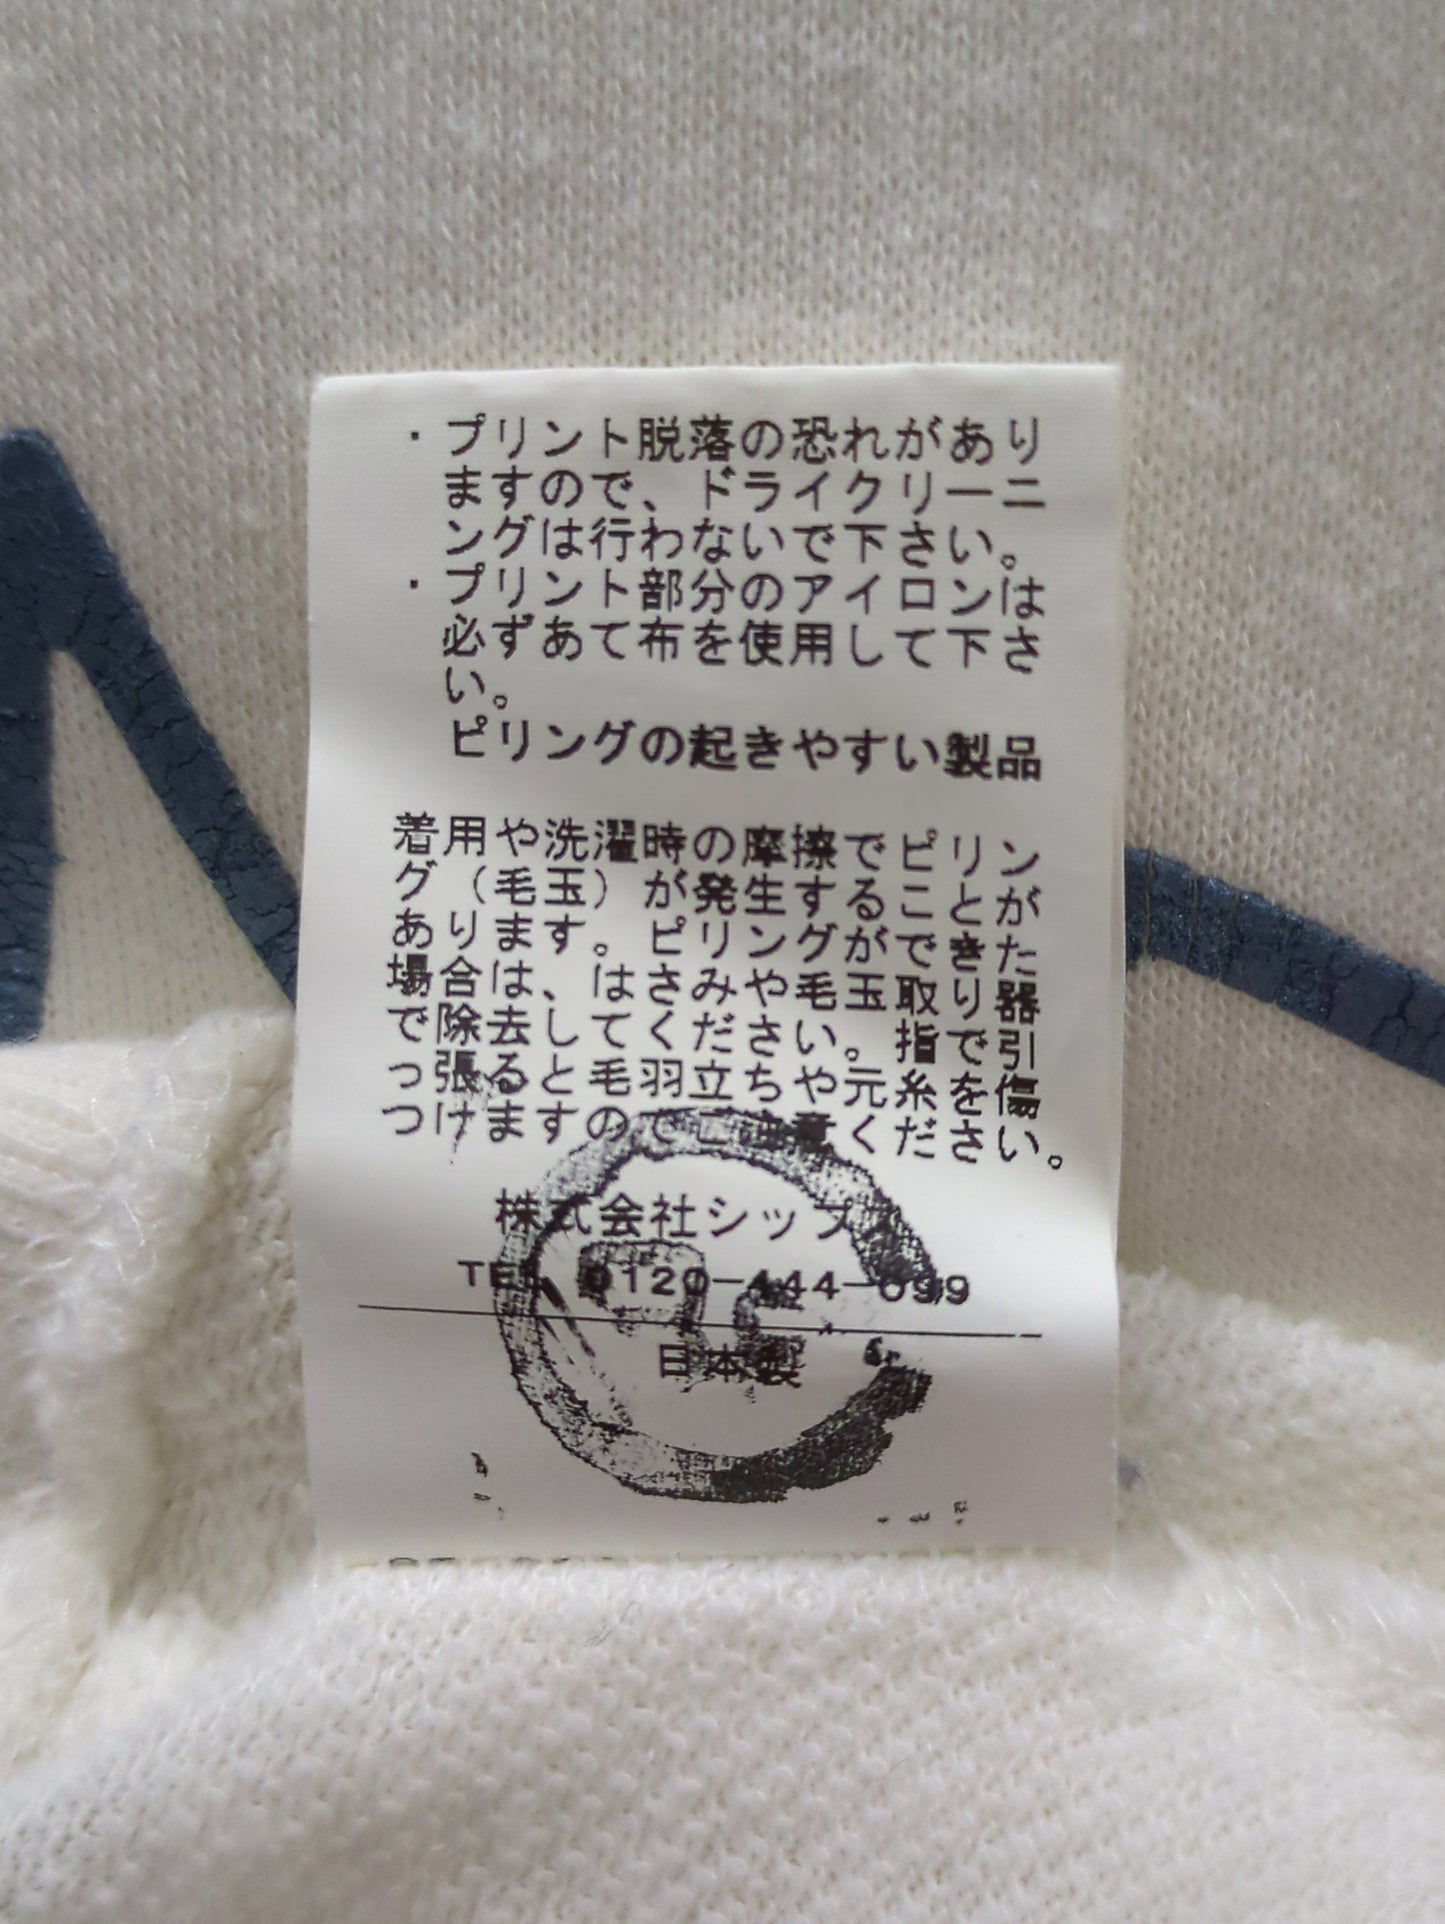 ・プリント脱落の恐れがあり
ますので、ドライクリーニ
ングは行わないで下さい。
・プリント部分のアイロンは
必ずあて布を使用して下さ
い。
ピリングの起きやすい製品
着用や洗濯時の摩擦でピリン
グ（毛玉）が発生することが
あります。ピリングができた
場合は、はさみや毛玉取り器
で除去してください。指で引
っ張ると毛羽立ちや元糸を傷
つけますのでご注意ください。
株式会社シップス
TEL 0120-444-099
日本製